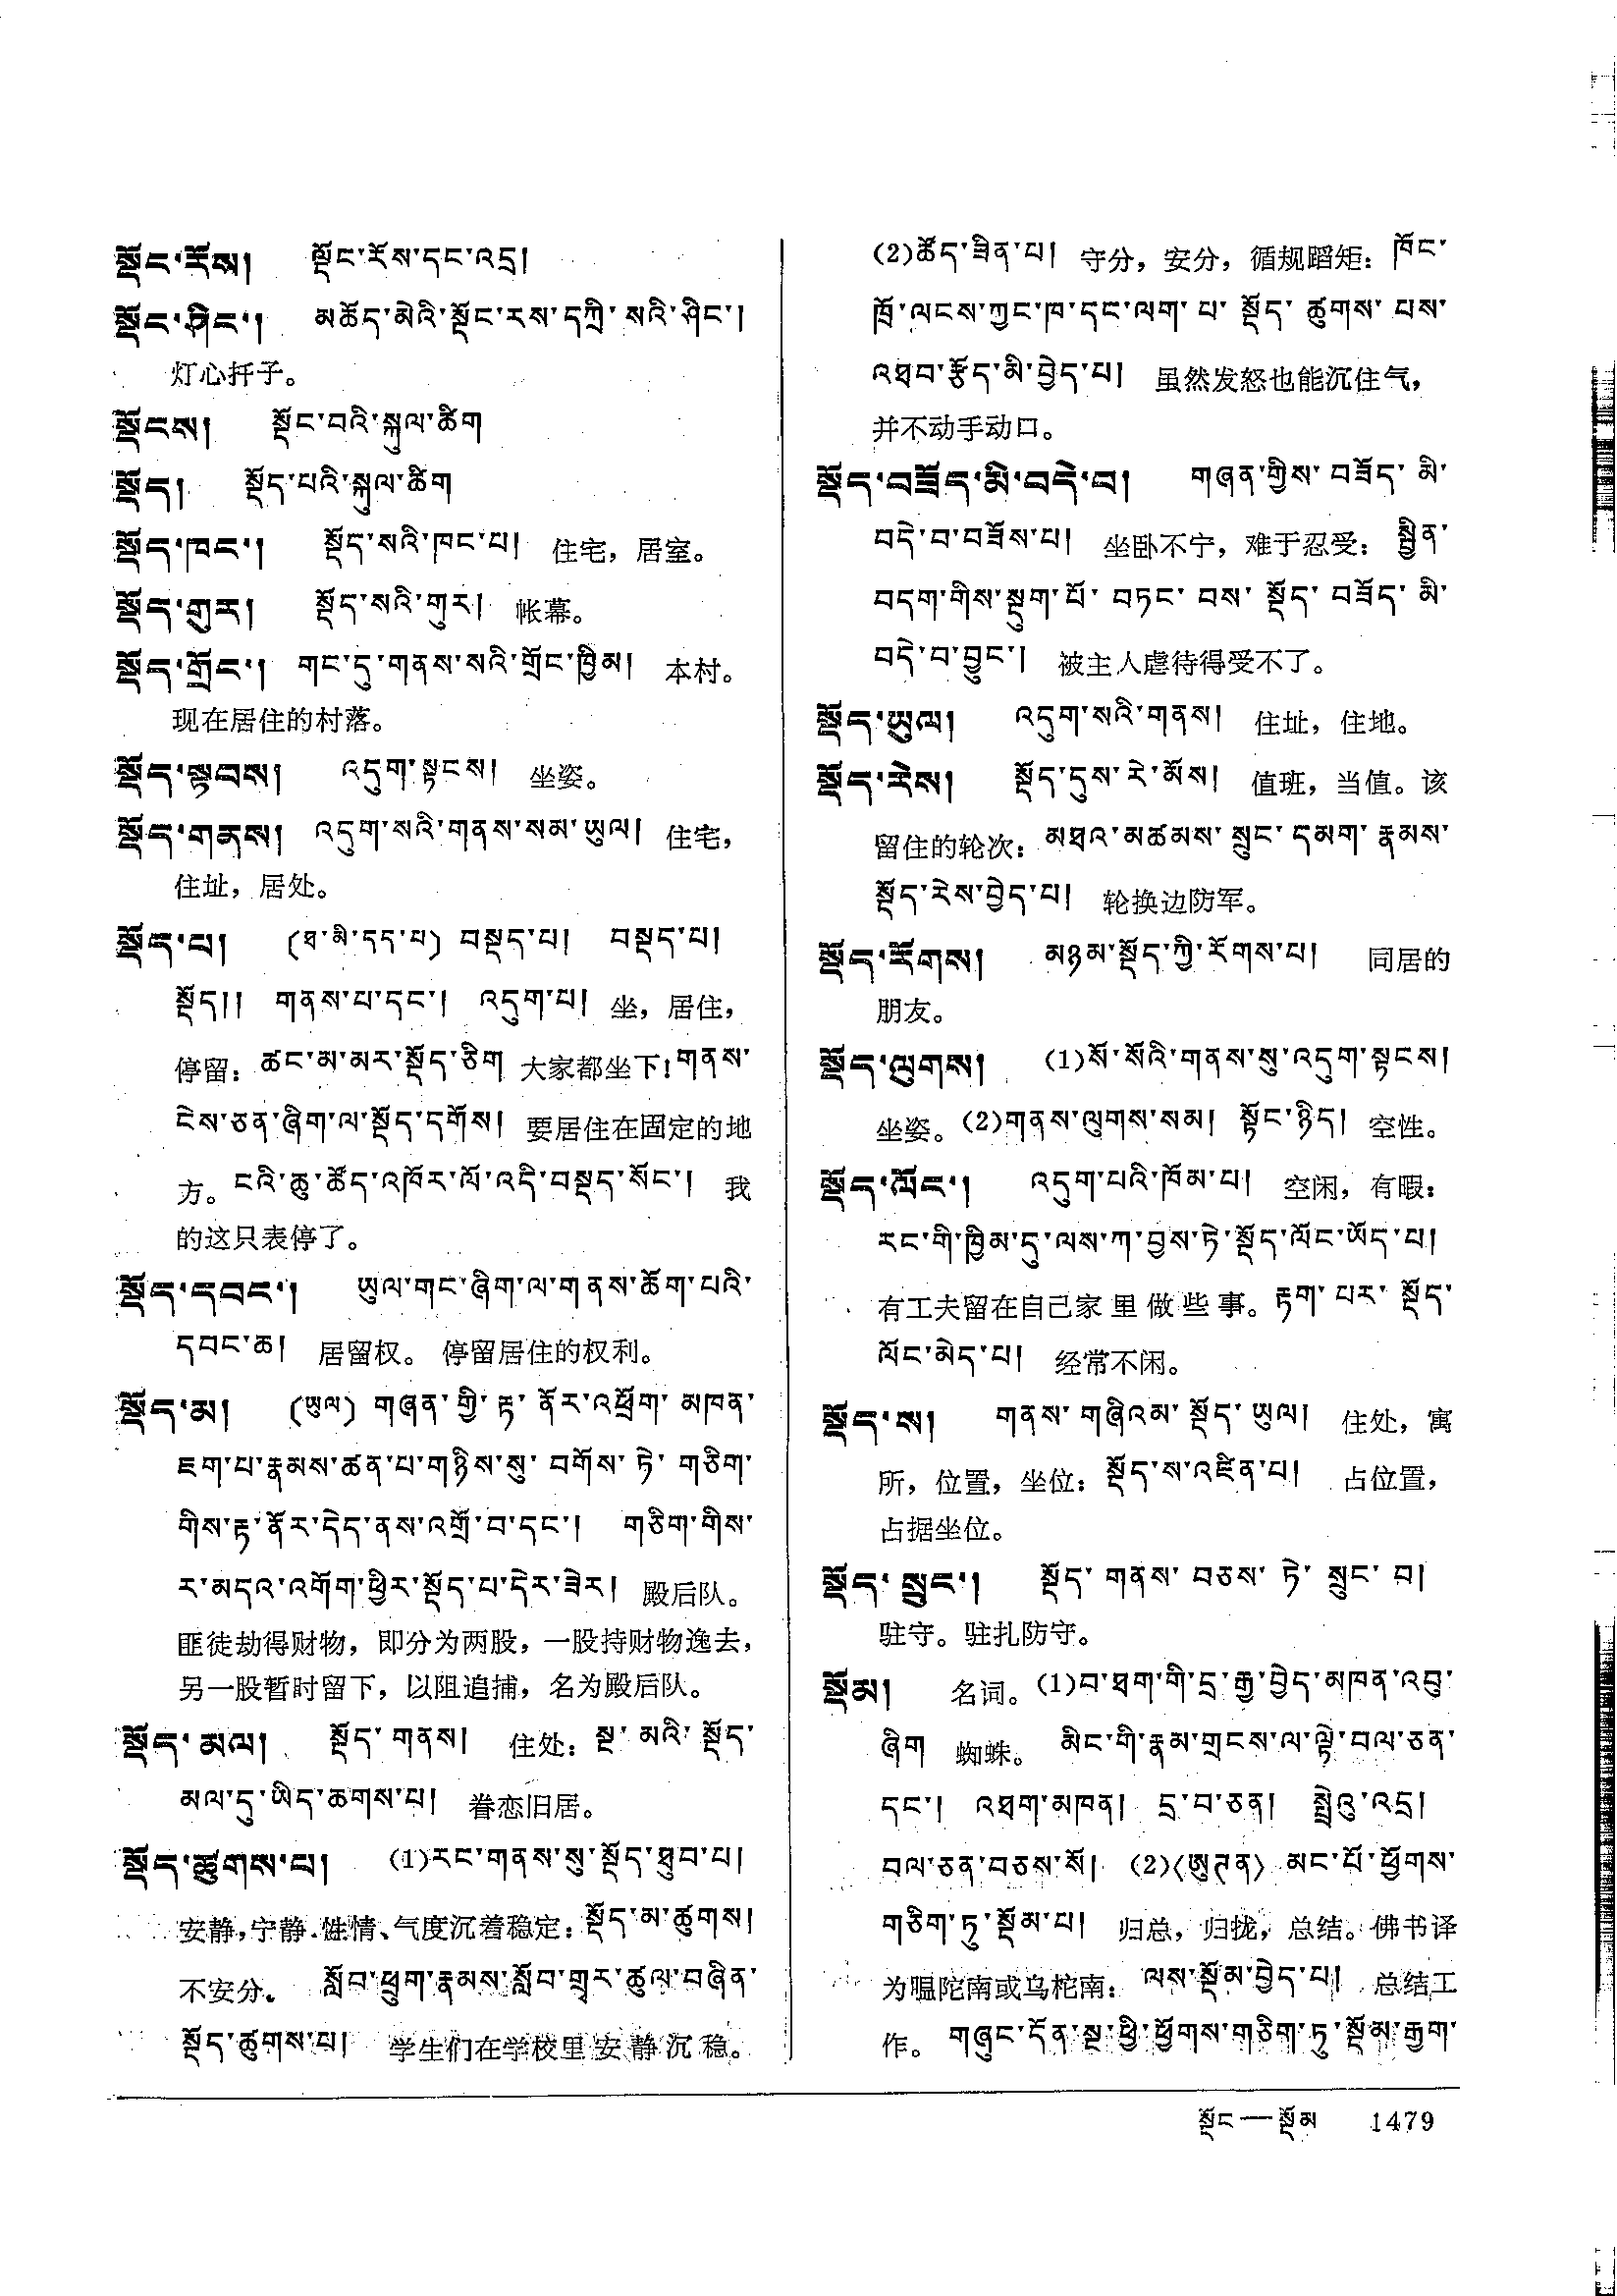 སྡོང་རོས།　སྡོང་རོས་དང་འདྲ།
སྡོང་ཤིང་།　མཆོད་མེའི་སྡོང་རས་དཀྲི་སའི་ཤིང་།
灯心扦子。
སྡོངས།　སྡོང་བའི་སྐུལ་ཚིག
སྡོད།　སྡོད་པའི་སྐུལ་ཚིག
སྡོད་ཁང་།　སྡོད་སའི་ཁང་པ།　住宅，居室。
སྡོད་གུར།　སྡོད་སའི་གུར།　帐幕。
སྡོད་གྲོང་།　གང་དུ་གནས་སའི་གྲོང་ཁྱིམ།　本村。
现在居住的村落。
སྡོད་སྟབས།　འདུག་སྟངས།　坐姿。
སྡོད་གནས།　འདུག་སའི་གནས་སམ་ཡུལ།　住宅，
住址，居处。
སྡོད་པ།　(ཐ་མི་དད་པ) བསྡད་པ།　བསྡད་པ།
སྡོད།།　གནས་པ་དང་།　འདུག་པ།　坐，居住，
停留：ཚང་མ་མར་སྡོད་ཅིག 大家都坐下！གནས་
ངེས་ཅན་ཞིག་ལ་སྡོད་དགོས།　要居住在固定的地
方。ངའི་ཆུ་ཚོད་འཁོར་ལོ་འདི་བསྡད་སོང་།　我
的这只表停了。
སྡོད་དབང་།　ཡུལ་གང་ཞིག་ལ་གནས་ཆོག་པའི་
དབང་ཆ།　居留权。停留居住的权利。
སྡོད་མ།　(ཡུལ) གཞན་གྱི་རྟ་ནོར་འཕྲོག་མཁན་
ཇག་པ་རྣམས་ཚན་པ་གཉིས་སུ་བགོས་ཏེ་གཅིག་
གིས་རྟ་ནོར་དེད་ནས་འགྲོ་བ་དང་།　གཅིག་གིས་
ར་མདའ་འགོག་ཕྱིར་སྡོད་པ་དེར་ཟེར།　殿后队。
匪徒劫得财物，即分为两股，一股持财物逸去，
另一股暂时留下，以阻追捕，名为殿后队。
སྡོད་མལ།　སྡོད་གནས།　住处：སྔ་མའི་སྡོད་
མལ་དུ་ཡིད་ཆགས་པ།　眷恋旧居。
སྡོད་ཚུགས་པ།　(1)རང་གནས་སུ་སྡོད་ཐུབ་པ།
安静，宁静．性情、气度沉着稳定：སྡོད་མ་ཚུགས།
不安分．　སློབ་ཕྲུག་རྣམས་སློབ་གྲྭར་ཚུལ་བཞིན་
སྡོད་ཚུགས་པ།　学生们在学校里安静沉稳。
(2)ཚོད་ཟིན་པ།　守分，安分，循规蹈矩：ཁོང་
ཁྲོ་ལངས་ཀྱང་ཁ་དང་ལག་པ་སྡོད་ཚུགས་པས་
འཐབ་རྩོད་མི་བྱེད་པ།　虽然发怒也能沉住气，
并不动手动口。
སྡོད་བཟོད་མི་བདེ་བ།　གཞན་གྱིས་བཟོད་མི་
བདེ་བ་བཟོས་པ།　坐卧不宁，难于忍受：སྦྱིན་
བདག་གིས་སྡུག་པོ་བཏང་བས་སྡོད་བཟོད་མི་
བདེ་བ་བྱུང་།　被主人虐待得受不了。
སྡོད་ཡུལ།　འདུག་སའི་གནས།　住址，住地。
སྡོད་རེས།　སྡོད་དུས་རེ་མོས།　值班，当值。该
留住的轮次：མཐའ་མཚམས་སྲུང་དམག་རྣམས་
སྡོད་རེས་བྱེད་པ།　轮换边防军。
སྡོད་རོགས།　མཉམ་སྡོད་ཀྱི་རོགས་པ།　同居的
朋友。
སྡོད་ལུགས།　(1)སོ་སོའི་གནས་སུ་འདུག་སྟངས།
坐姿。(2)གནས་ལུགས་སམ།　སྟོང་ཉིད།　空性。
སྡོད་ལོང་།　འདུག་པའི་ཁོམ་པ།　空闲，有暇：
རང་གི་ཁྱིམ་དུ་ལས་ཀ་བྱས་ཏེ་སྡོད་ལོང་ཡོད་པ།
有工夫留在自己家里做些事。རྟག་པར་སྡོད་
ལོང་མེད་པ།　经常不闲。
སྡོད་ས།　གནས་གཞིའམ་སྡོད་ཡུལ།　住处，寓
所，位置，坐位：སྡོད་ས་འཛིན་པ།　占位置，
占据坐位。
སྡོད་སྲུང་།　སྡོད་གནས་བཅས་ཏེ་སྲུང་བ།
驻守。驻扎防守。
སྡོམ།　名词。(1)བ་ཐག་གི་དྲ་རྒྱ་བྱེད་མཁན་འབུ་
ཞིག 蜘蛛。　མིང་གི་རྣམ་གྲངས་ལ་ལྟེ་བལ་ཅན་
དང་།　འཐག་མཁན།　དྲ་བ་ཅན།　སྤྲེའུ་འདྲ།
བལ་ཅན་བཅས་སོ།　(2)(ཨུཏན) མང་པོ་ཕྱོགས་
གཅིག་ཏུ་སྡོམ་པ།　归总，归拢，总结。佛书译
为嗢陀南或乌柁南：ལས་སྡོམ་བྱེད་པ།　总结工
作。གཞུང་དོན་སྔ་ཕྱི་ཕྱོགས་གཅིག་ཏུ་སྡོམ་རྒྱག་
སྡོང—སྡོམ　1479